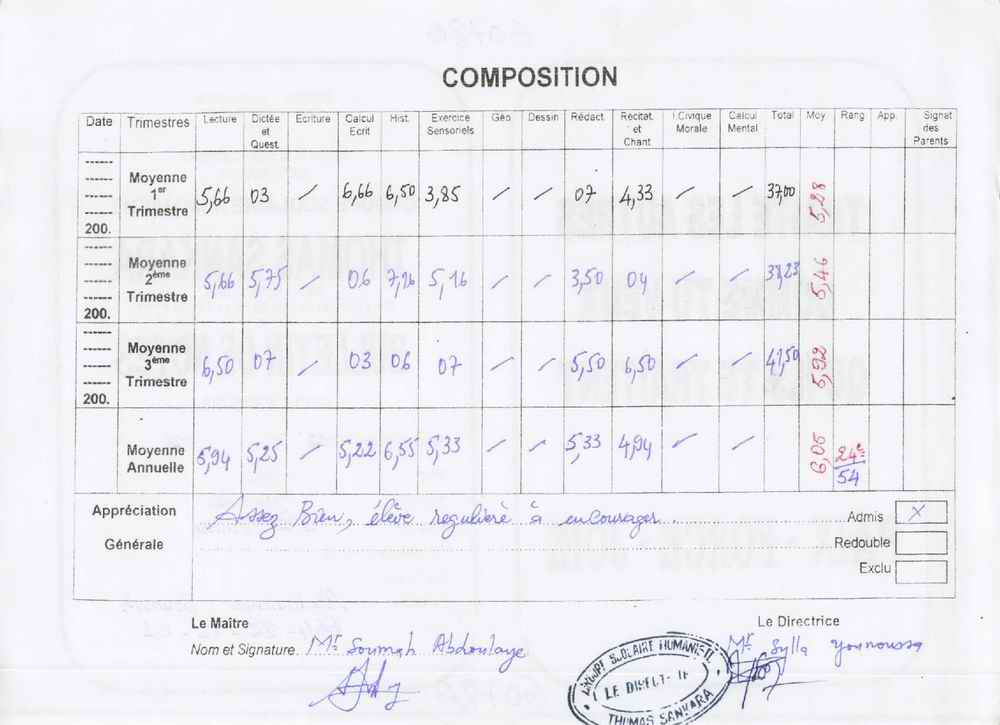 COMPOSITION
Date Trimestres Lecture Dictée et Quest. Ecriture Calcul Ecrit Hist. Exercice Sensoriels Géo Dessin Rédact. Recitat. et Chant I.Civique Morale Calcul Mental Total Moy. Rang App. Signat des Parents
200. Moyenne 1er Trimestre 5,66 03 / 6,66 6,50 3,85 / / 07 4,33 / / 37,00 5,28
200. Moyenne 2ème Trimestre 5,66 5,75 / 06 7,16 5,16 / / 3,50 04 / / 5,46
200. Moyenne 3ème Trimestre 6,50 07 / 03 06 07 / / 5,50 6,50 / / 41,50 5,92
Moyenne Annuelle 5,94 5,25 / 5,22 6,55 5,33 / / 5,33 4,94 / / 6,05 24e/54
Appréciation Générale Assez Bien, élève regulière à encourager Admis X
Redouble
Exclu
Le Maître Le Directrice
Nom et Signature. Mr Soumah Abdoulaye Mr Sylla Younoussa
SCOLAIRE HUMANISTE
LE DIRECT
THOMAS SANKARA